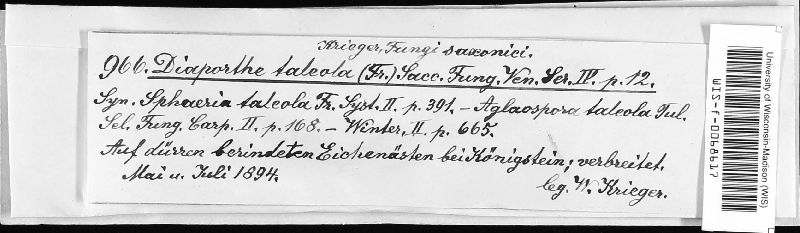 Krieger, Fungi saxonici.
966. Diaporthe taleola (Fr.) Sacc. Fung. Ven. Ser. IV. p. 12.
Syn. Sphaeria taleola Fr. Syst. II. p. 391. – Aglaospora taleola Tul.
Sel. Fung. Carp. II. p. 168. – Winter, II. p. 665.
Auf dürren berindeten Eichenästen bei Königstein; verbreitet.
Mai u. Juli 1894.
leg. W. Krieger.
University of Wisconsin-Madison (WIS)
WIS-f-0068617